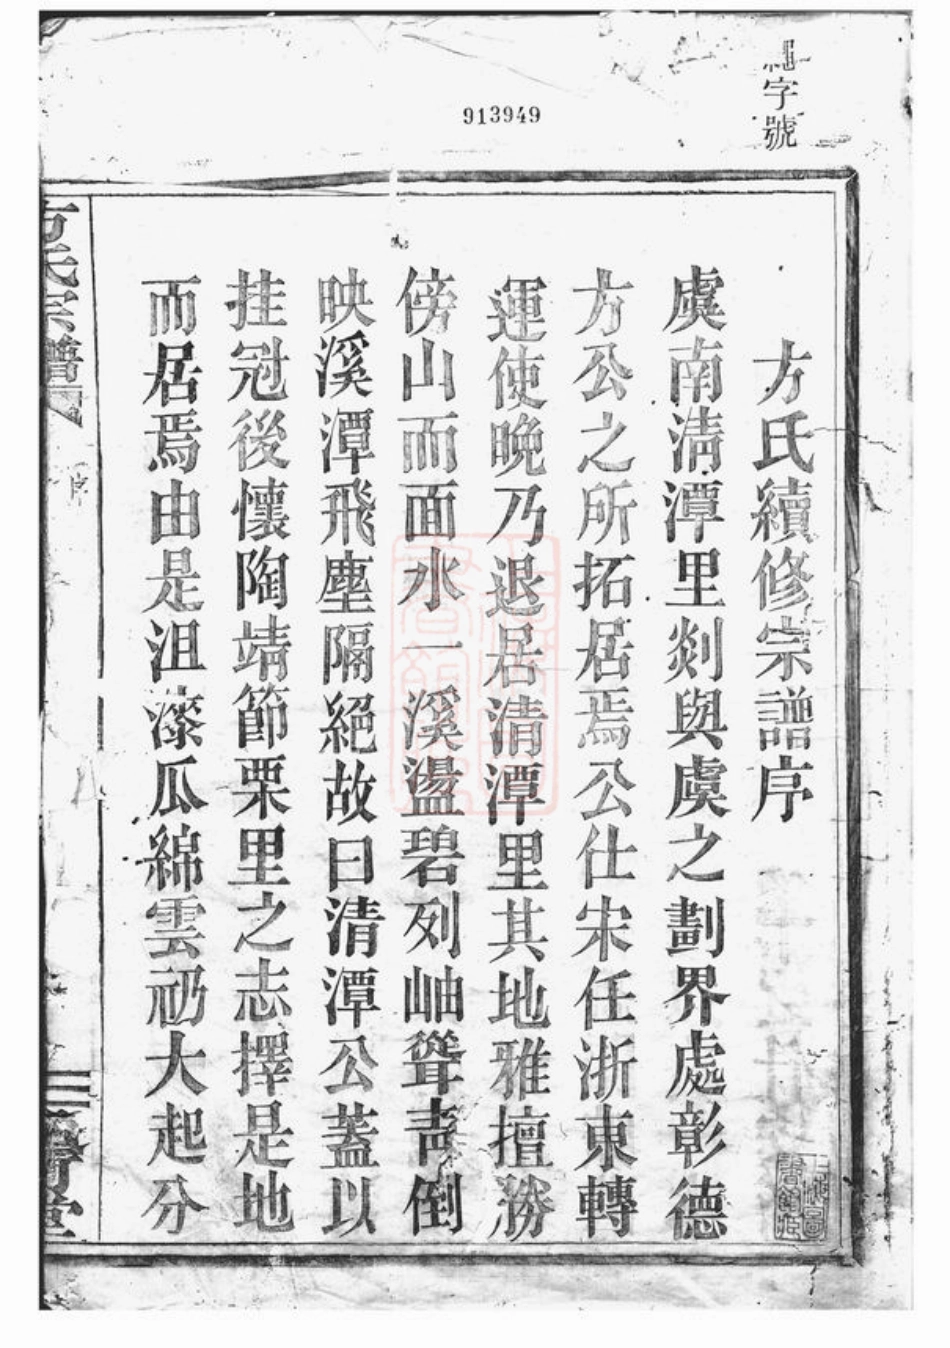 字號
913949
方氏續修宗譜序
虞南清潭里剡與虞之劃界處彰德
方公之所拓居焉公仕宋任浙東轉
運使晚乃退居清潭里其地雅擅勝
傍山而面水一溪盪碧列岫聳青倒
映溪潭飛塵隔絕故曰清潭公蓋以
挂冠後懷陶靖節栗里之志擇是地
而居焉由是沮漆瓜綿雲礽大起分
方氏宗譜
序